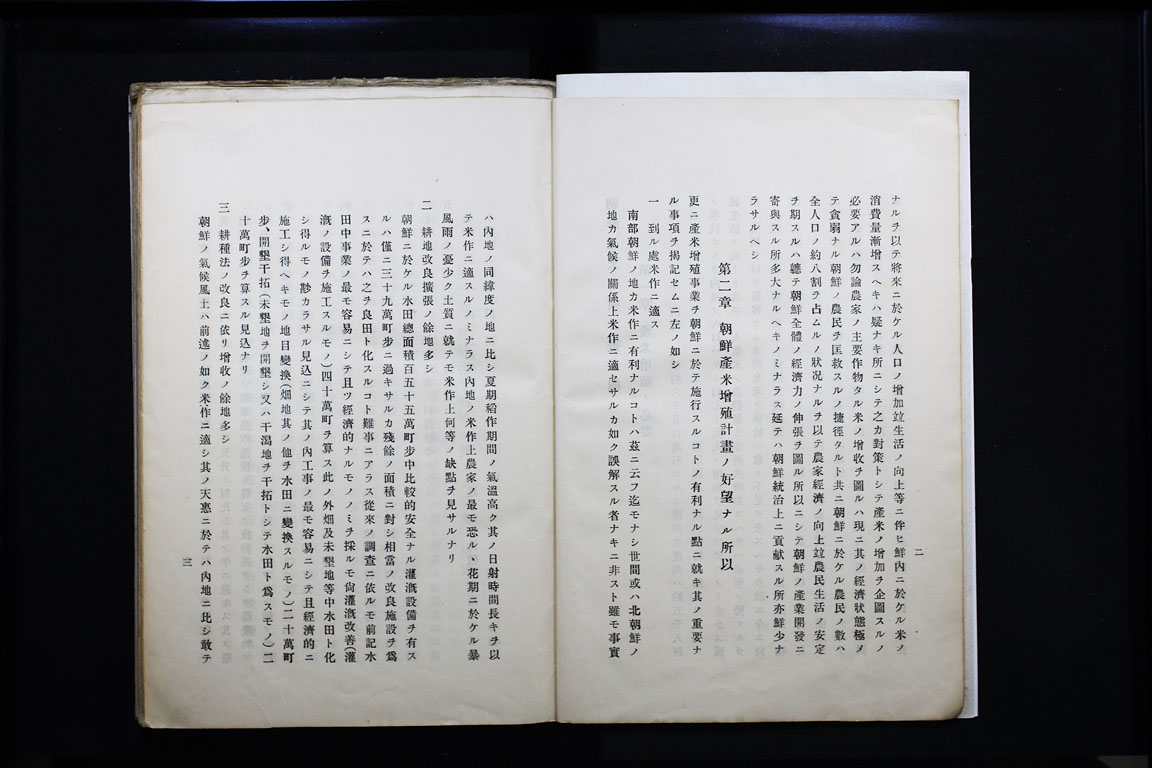 二
ナルヲ以テ將來ニ於ケル人口ノ增加竝生活ノ向上等ニ伴ヒ鮮內ニ於ケル米ノ
消費量漸增スヘキハ疑ナキ所ニシテ之カ對策トシテ產米ノ增加ヲ企圖スルノ
必要アルハ勿論農家ノ主要作物タル米ノ增收ヲ圖ルハ現ニ其ノ經濟狀態極メ
テ貪弱ナル朝鮮ノ農民ヲ匡救スルノ捷徑タルト共ニ朝鮮ニ於ケル農民ノ數ハ
全人口ノ約八割ヲ占ムルノ狀況ナルヲ以テ農家經濟ノ向上竝農民生活ノ安定
ヲ期スルハ轆テ朝鮮全體ノ經濟力ノ伸張ヲ圖ル所以ニシテ朝鮮ノ產業開發ニ
寄與スル所多大ナルヘキノミナラス延テハ朝鮮統治上ニ貢獻スル所亦鮮少ナ
ラサルヘシ
第二章 朝鮮產米增殖計畫ノ好望ナル所以
更ニ產米增殖事業ヲ朝鮮ニ於テ施行スルコトノ有利ナル點ニ就キ其ノ重要ナ
ル事項ヲ揭記セムニ左ノ如シ
一 到ル處米作ニ適ス
南部朝鮮ノ地カ米作ニ有利ナルコトハ茲ニ云フ迄モナシ世間或ハ北朝鮮ノ
地カ氣候ノ關係上米作ニ適セサルカ如ク誤解スル者ナキニ非スト雖モ事實
ハ內地ノ同緯度ノ地ニ比シ夏期稻作期間ノ氣溫高ク其ノ日射時間長キヲ以
テ米作ニ適スルノミナラス內地ノ米作上農家ノ最モ恐ルヽ花期ニ於ケル暴
風雨ノ憂少ク土質ニ就テモ米作上何等ノ缺點ヲ見サルナリ
二 耕地改良擴張ノ餘地多シ
朝鮮ニ於ケル水田總面積百五十五萬町步中比較的安全ナル灌漑設備ヲ有ス
ルハ僅ニ三十九萬町步ニ過キサルカ殘餘ノ面積ニ對シ相當ノ改良施設ヲ爲
スニ於テハ之ヲ良田ト化スルコト難事ニアラス從來ノ調査ニ依ルモ前記水
田中事業ノ最モ容易ニシテ且ツ經濟的ナルモノノミヲ採ルモ尙灌漑改善(灌
漑ノ設備ヲ施工スルモノ)四十萬町ヲ算ス此ノ外畑及未墾地等中水田ト化
シ得ルモノ尠カラサル見込ニシテ其ノ內工事ノ最モ容易ニシテ且經濟的ニ
施工シ得ヘキモノ地目變換(畑地其ノ他ヲ水田ニ變換スルモノ)二十萬町
步、開墾干拓(未墾地ヲ開墾シ又ハ干潟地ヲ干拓トシテ水田ト爲スモノ)二
十萬町步ヲ算スル見込ナリ
三 耕種法ノ改良ニ依リ增收ノ餘地多シ
朝鮮ノ氣候風土ハ前述ノ如ク米作ニ適シ其ノ天惠ニ於テハ內地ニ比シ敢テ
三